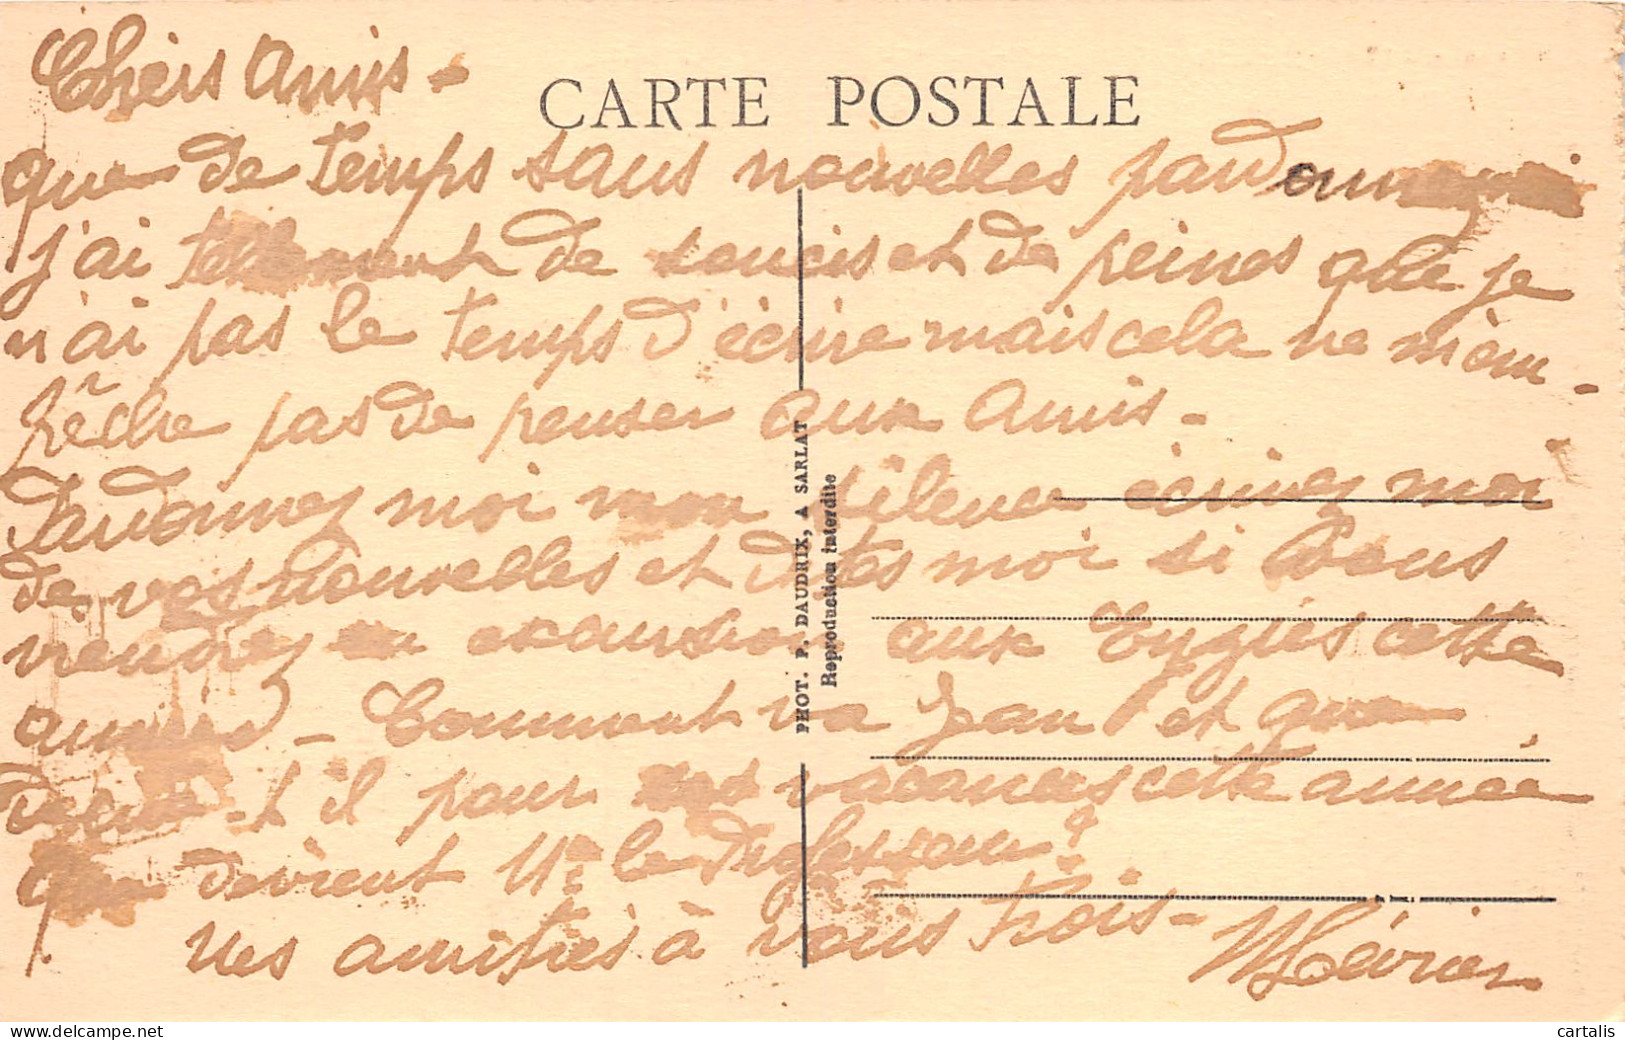 Chers Amis -
CARTE POSTALE
que de temps sans nouvelles pardonnez moi
j'ai tellement de soucis et de peines que je
n'ai pas le temps d'écrire mais cela ne m'em-
pêche pas de penser aux Amis -
Pardonnez moi mon silence écrivez moi
de vos nouvelles et dites moi si vous
viendrez en excursion aux Eyzies cette
année - Comment va Jean et que
t il pour ses vacances cette année
que devient Mr le Professeur?
mes amitiés à vous trois -
PHOT. P. DAUDRIX, A SARLAT
Reproduction interdite
delcampe.net
cartalis